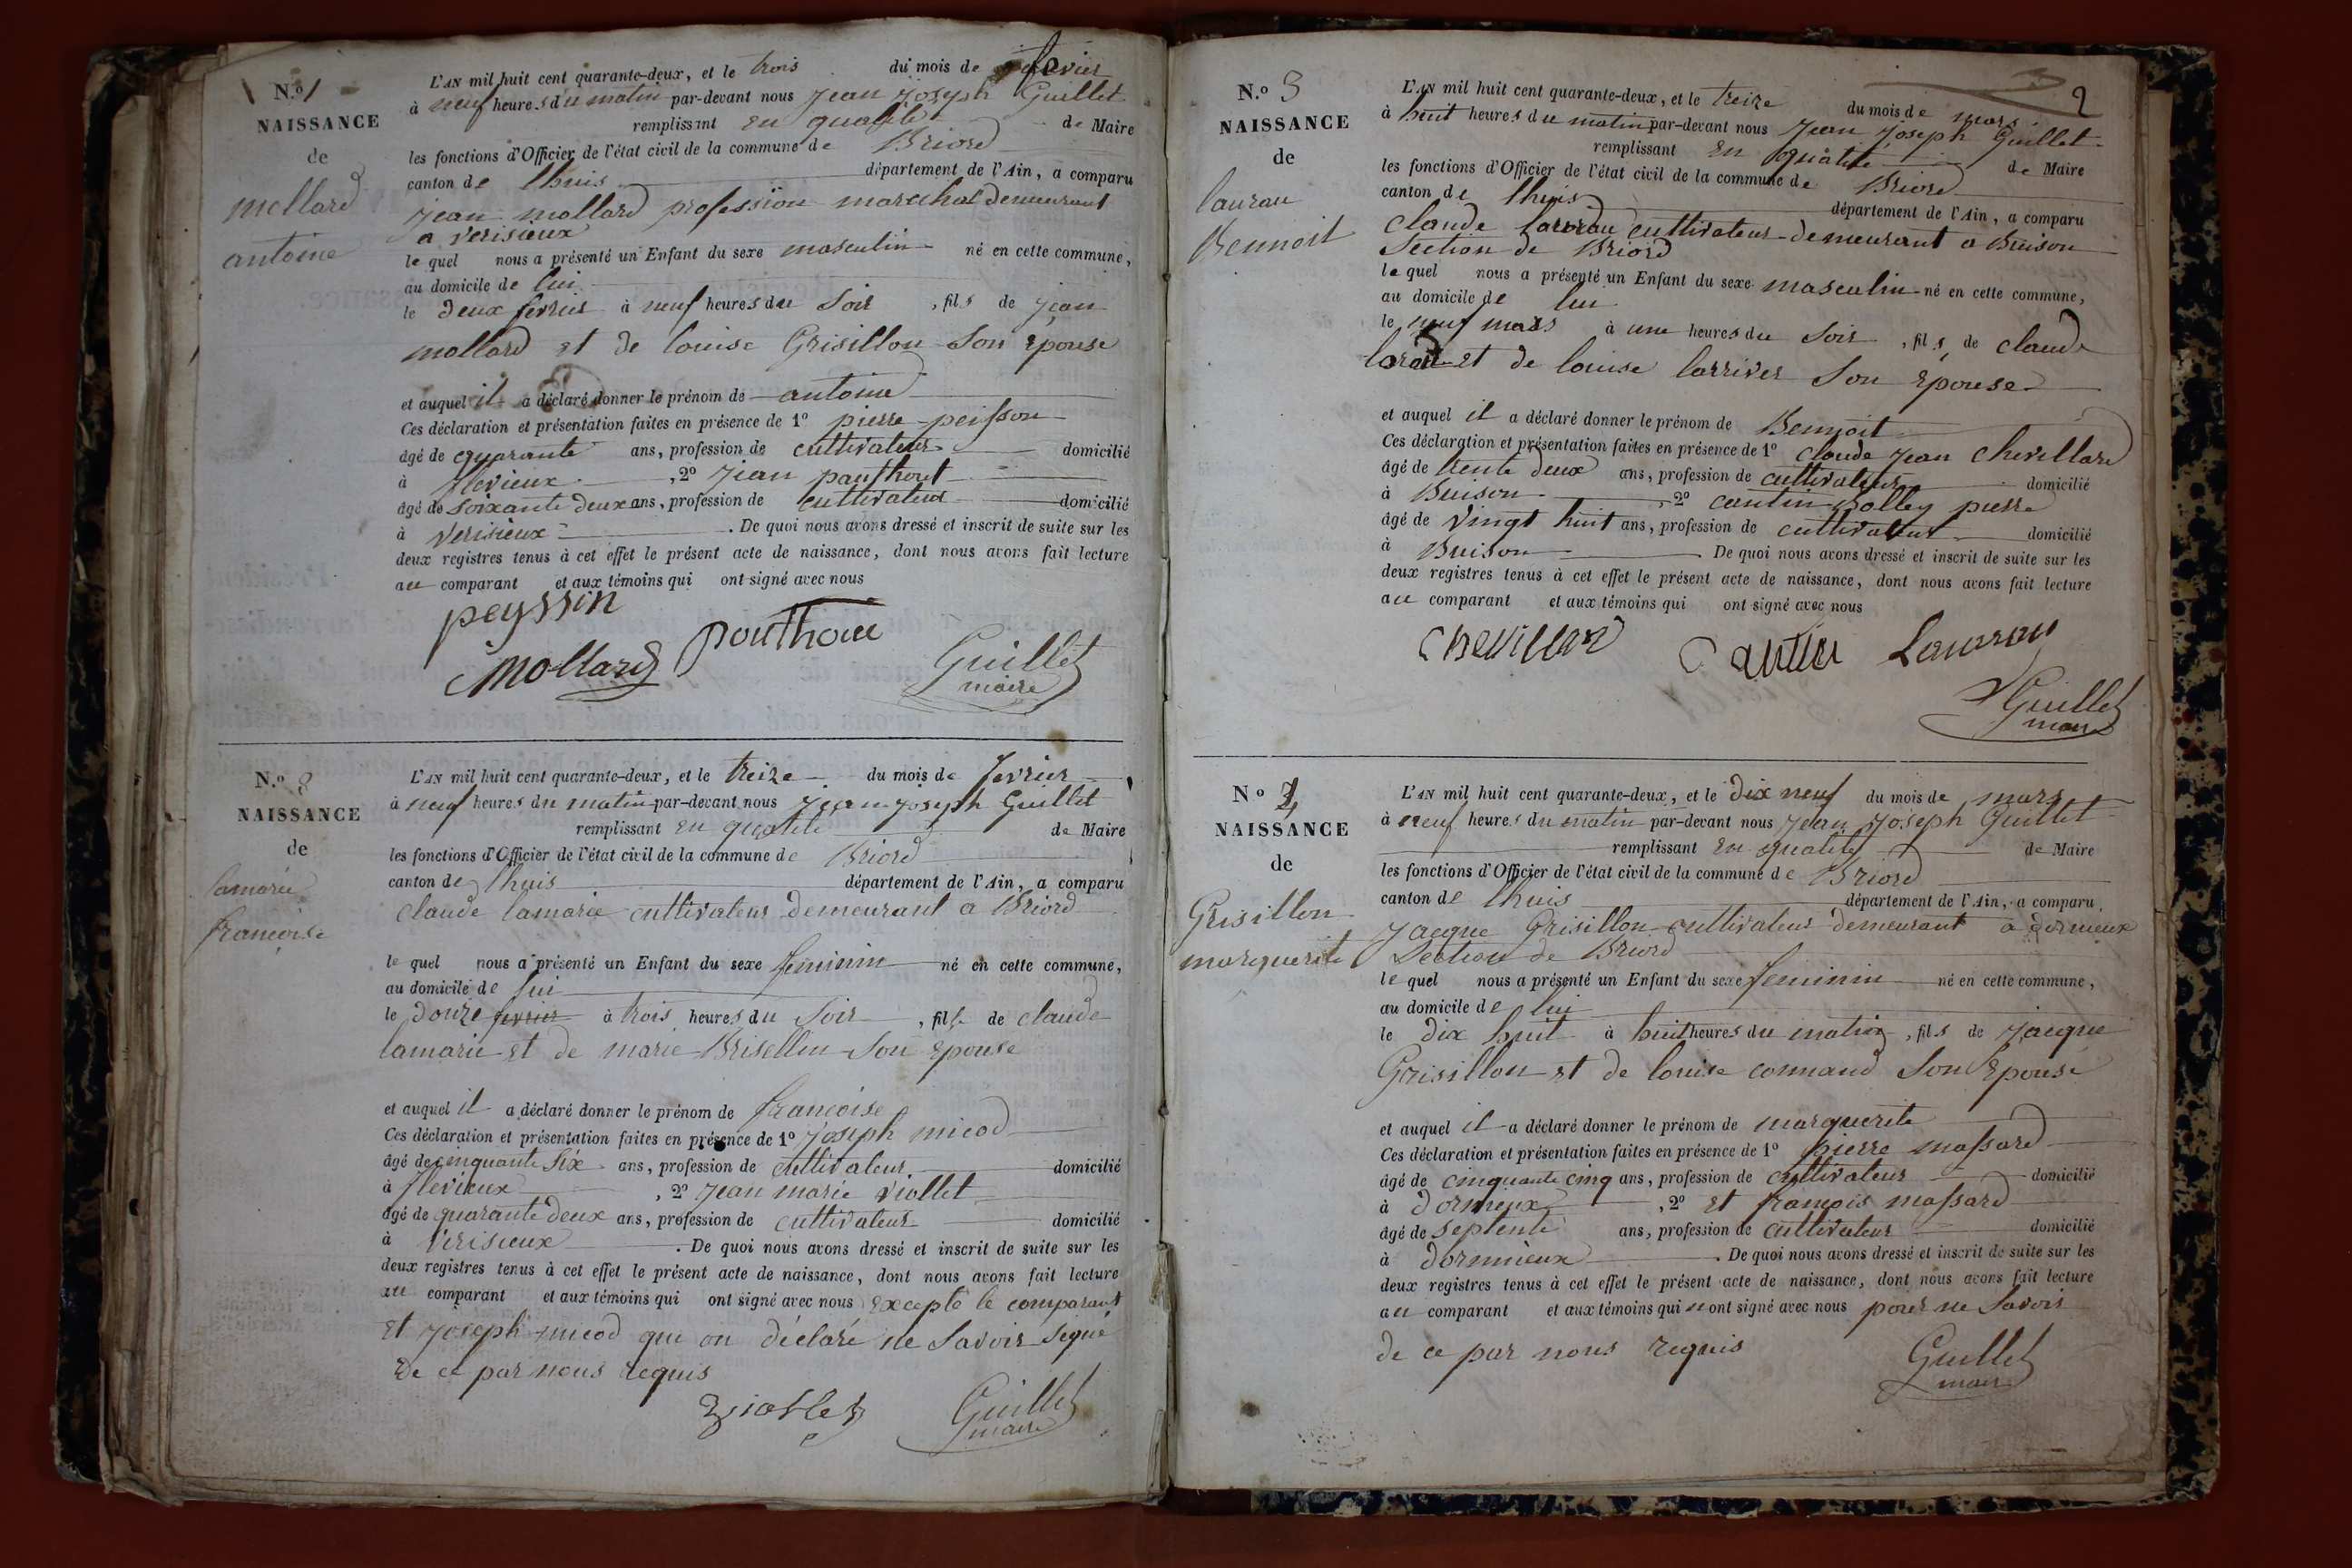 N.º 1
NAISSANCE
de
mollard
antoine
L'AN mil huit cent quarante-deux, et le trois du mois de fevrier
à neuf heures du matin par-devant nous Jean Joseph Guillet
remplissant en qualité de Maire
les fonctions d'Officier de l'état civil de la commune de Briord
canton de lhuis département de l'Ain, a comparu
jean mollard profession marechal demeurant
a verisieux
le quel nous a présenté un Enfant du sexe masculin né en cette commune,
au domicile de lui
le deux fevrier à neuf heures du Soir, fils de jean
mollard et de louise Grisillon Son épouse
et auquel il a déclaré donner le prénom de antoine
Ces déclaration et présentation faites en présence de 1º pierre peisson
âgé de quarante ans, profession de cultivateur domicilié
à flevieux, 2º Jean panthout
âgé de Soixante deux ans, profession de cultivateur domicilié
à verisieux. De quoi nous avons dressé et inscrit de suite sur les
deux registres tenus à cet effet le présent acte de naissance, dont nous avons fait lecture
au comparant et aux témoins qui ont signé avec nous
peyssin
Mollard ponthou Guillet
maire
N.º
NAISSANCE
de
lamarie
francoise
L'AN mil huit cent quarante-deux, et le treize du mois de fevrier
à neuf heures du matin par-devant nous jean joseph Guillet
remplissant en qualité de Maire
les fonctions d'Officier de l'état civil de la commune de Briord
canton de lhuis département de l'Ain, a comparu
claude lamarie cultivateur demeurant a Briord
le quel nous a présenté un Enfant du sexe feminin né en cette commune,
au domicile de lui
le douze fevrier à trois heures du Soir, fils de claude
lamarie et de marie Brisellin Son epouse
et auquel il a déclaré donner le prénom de francoise
Ces déclaration et présentation faites en présence de 1º Joseph micod
âgé de cinquante Six ans, profession de cultivateur domicilié
à flevieux, 2º Jean marie viollet
âgé de quarante deux ans, profession de cultivateur domicilié
à verisieux. De quoi nous avons dressé et inscrit de suite sur les
deux registres tenus à cet effet le présent acte de naissance, dont nous avons fait lecture
au comparant et aux témoins qui ont signé avec nous excepté le comparant
et joseph micod qui on déclaré ne Savoir Signé
de ce par nous requis
viollet Guillet
maire
2
N.º 3
NAISSANCE
de
laurau
Bennoit
L'AN mil huit cent quarante-deux, et le treize du mois de mars
à huit heures du matin par-devant nous Jean Joseph Guillet
remplissant en qualité de Maire
les fonctions d'Officier de l'état civil de la commune de Briord
canton de lhuis département de l'Ain, a comparu
claude laurau cultivateur demeurant a Buison
Section de Briord
le quel nous a présenté un Enfant du sexe masculin né en cette commune,
au domicile de lui
le neuf mars à une heures du Soir, fils de claude
et de louise larriver Son épouse
et auquel il a déclaré donner le prénom de Bennoit
Ces déclaration et présentation faites en présence de 1º claude jean chevillard
âgé de trente deux ans, profession de cultivateur domicilié
à Buison, 2º cantin Bolley pierre
âgé de vingt huit ans, profession de cultivateur domicilié
à Buison. De quoi nous avons dressé et inscrit de suite sur les
deux registres tenus à cet effet le présent acte de naissance, dont nous avons fait lecture
au comparant et aux témoins qui ont signé avec nous
Chevillar Cantin Lauarau
Guillet
maire
Nº 4
NAISSANCE
de
Grisillon
marguerite
L'AN mil huit cent quarante-deux, et le dix neuf du mois de mars
à neuf heures du matin par-devant nous Jean Joseph Guillet
remplissant en qualité de Maire
les fonctions d'Officier de l'état civil de la commune de Briord
canton de lhuis département de l'Ain, a comparu
jacque Grisillon cultivateur demeurant a dornieux
Section de Briord
le quel nous a présenté un Enfant du sexe feminin né en cette commune,
au domicile de lui
le dix huit à huit heures du matin, fils de jacque
Grisillon et de louise connand Son Epouse
et auquel il a déclaré donner le prénom de marguerite
Ces déclaration et présentation faites en présence de 1º pierre massard
âgé de cinquante cinq ans, profession de cultivateur domicilié
à dornieux, 2º et francois massard
âgé de septente ans, profession de cultivateur domicilié
à dornnieux. De quoi nous avons dressé et inscrit de suite sur les
deux registres tenus à cet effet le présent acte de naissance, dont nous avons fait lecture
au comparant et aux témoins qui nont signé avec nous pour ne Savoir
de ce par nous requis
Guillet
maire